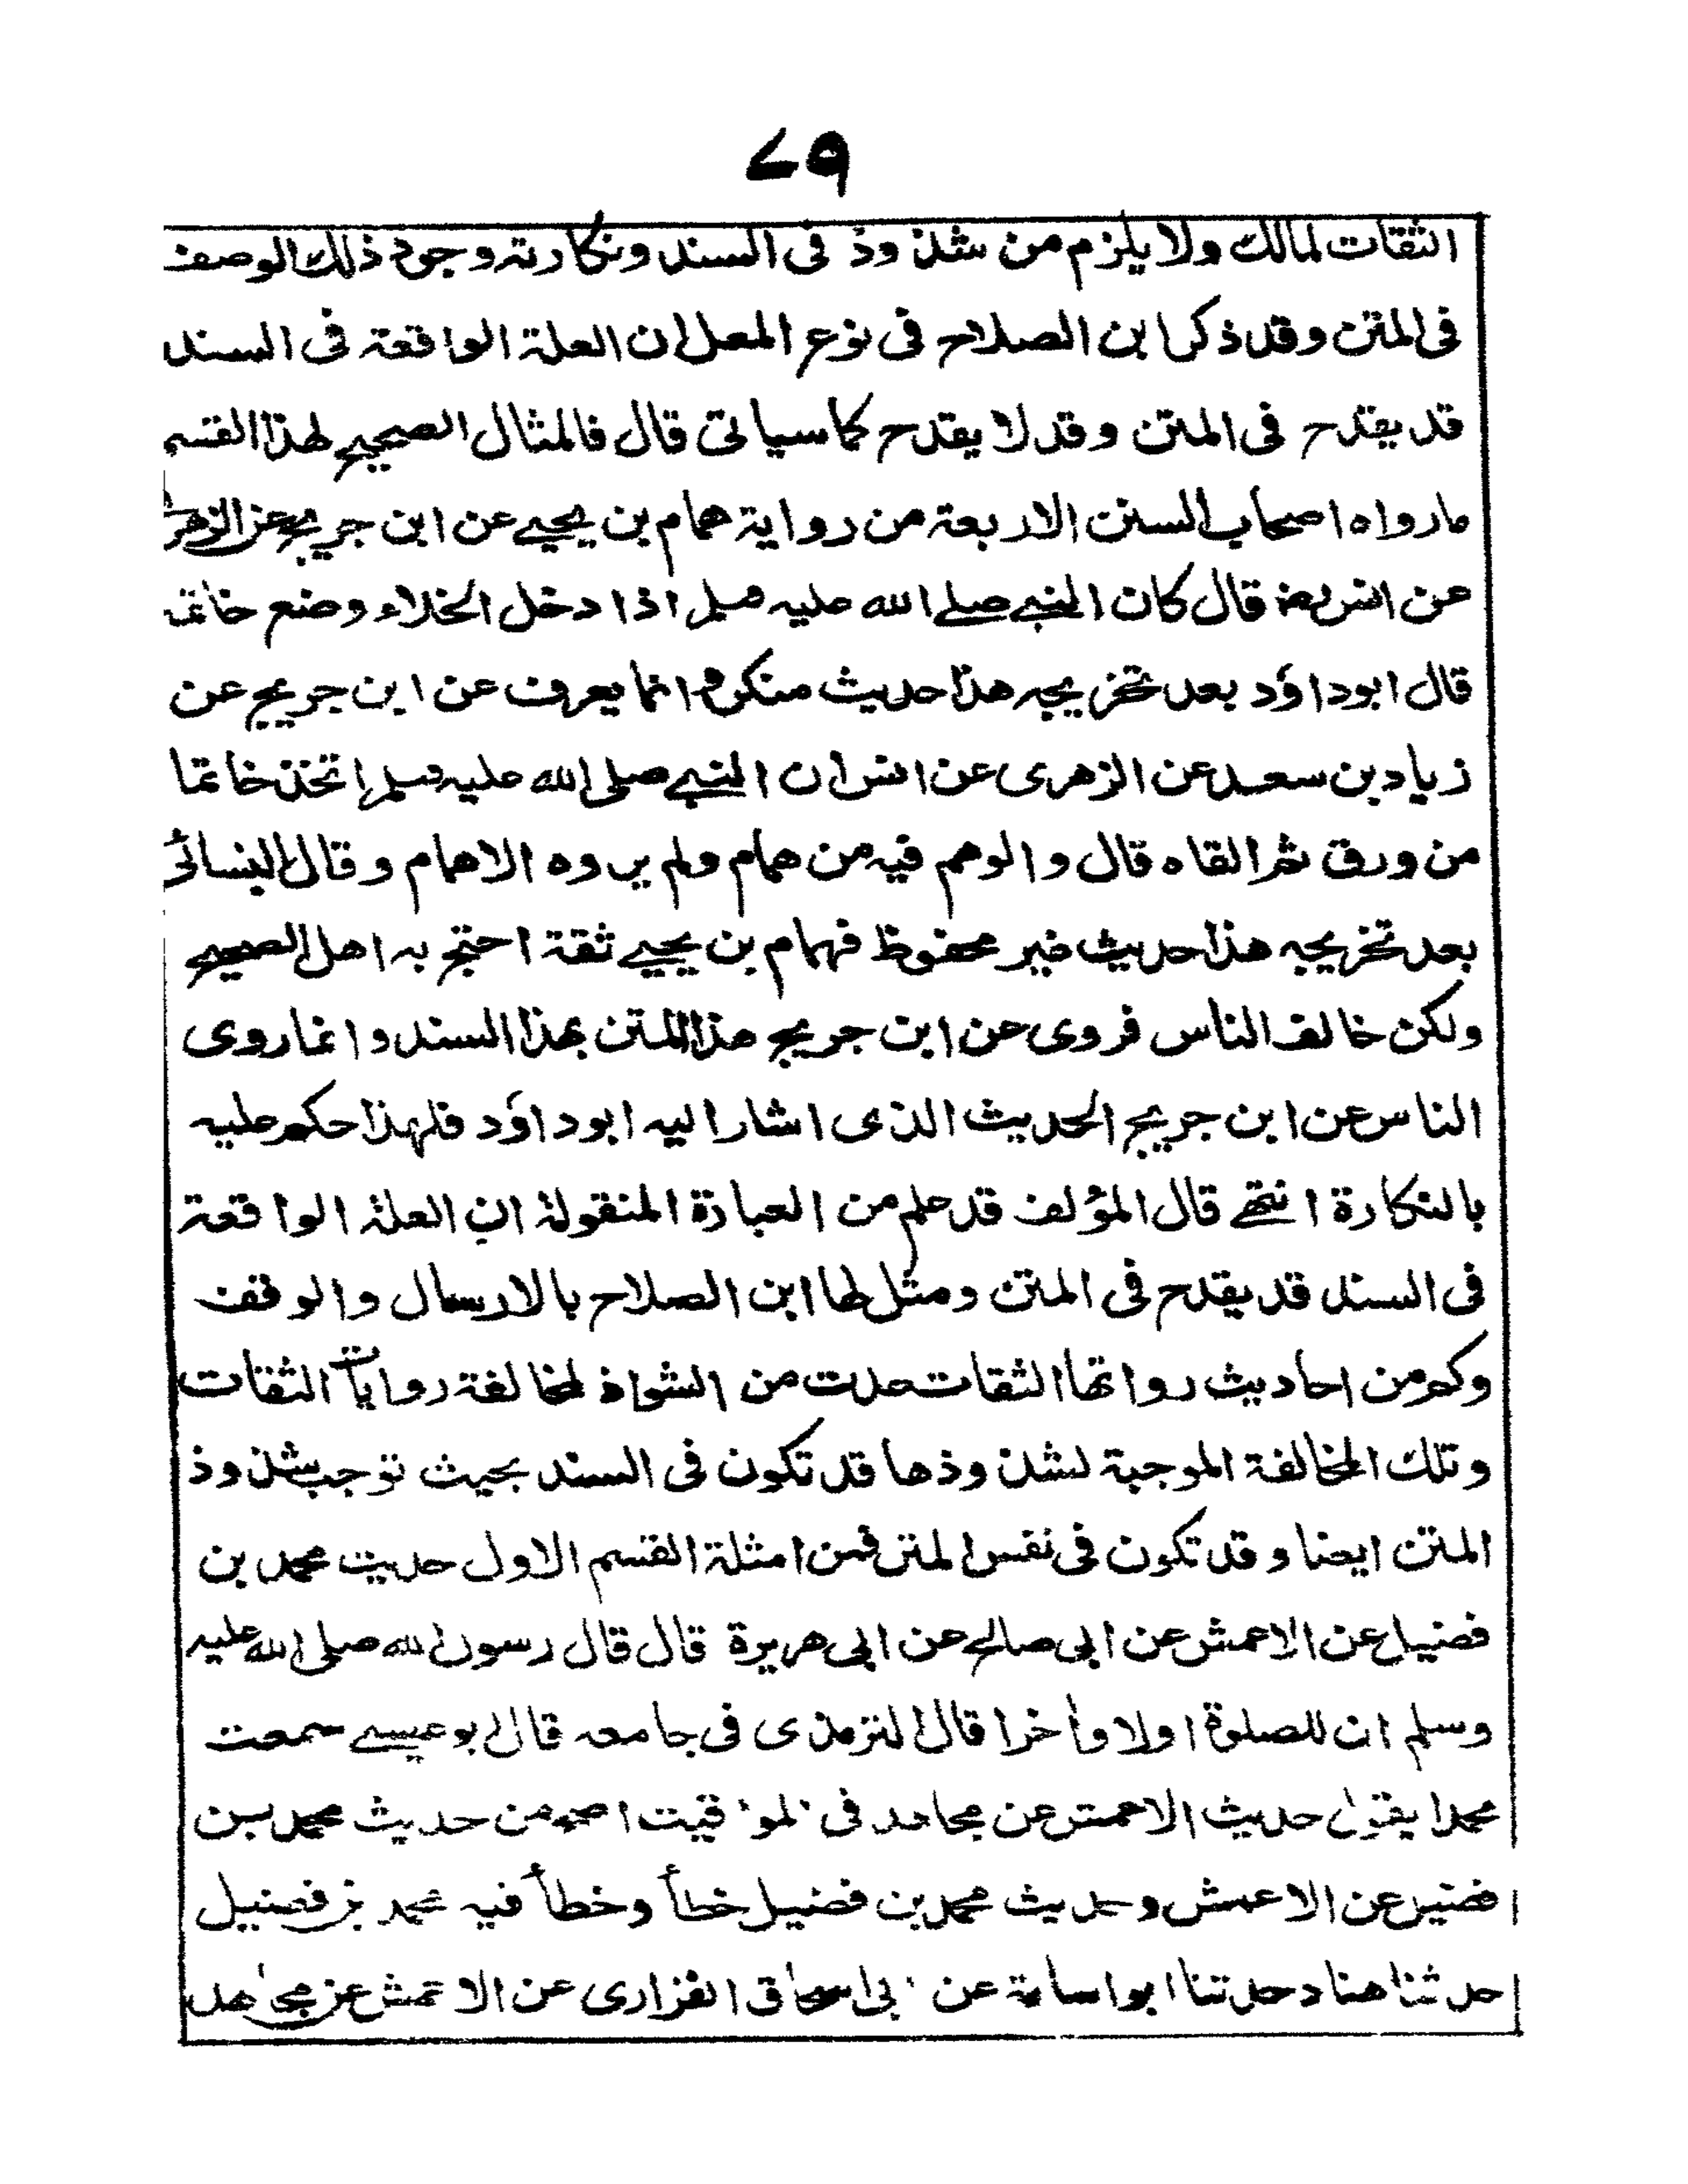 ٧٩
الثقات لمالك ولا يلزم من شذوذ فى السند ونكارته وجود ذلك الوصف
فى المتن وقد ذكر ابن الصلاح فى نوع المعل ان العلة الواقعة فى السند
قد يقدح فى المتن وقد لا يقدح كما سياتى قال فالمثال الصحيح لهذا القسم
ما رواه اصحاب السنن الاربعة من رواية همام بن يحيى عن ابن جريج عن الزهرى
عن انس رض قال كان النبى صلى الله عليه وسلم اذا دخل الخلاء وضع خاتمه
قال ابوداؤد بعد تخريجه هذا حديث منكر وانما يعرف عن ابن جريج عن
زياد بن سعد عن الزهرى عن انس ان النبى صلى الله عليه وسلم اتخذ خاتما
من ورق ثم القاه قال والوهم فيه من همام ولم يروه الا همام وقال النسائى
بعد تخريجه هذا حديث غير محفوظ فهمام بن يحيى ثقة احتج به اهل الصحيح
ولكن خالف الناس فروى عن ابن جريج هذا المتن بهذا السند وانما روى
الناس عن ابن جريج الحديث الذى اشار اليه ابوداؤد فلهذا حكم عليه
بالنكارة انتهى قال المؤلف قد علم من العبارة المنقولة ان العلة الواقعة
فى السند قد يقدح فى المتن ومثل لها ابن الصلاح بالارسال والوقف
وكم من احاديث رواتها الثقات عدت من الشواذ لمخالفة روايات الثقات
وتلك المخالفة الموجبة لشذوذها قد تكون فى السند بحيث توجب شذوذ
المتن ايضا وقد تكون فى نفس المتن فمن امثلة القسم الاول حديث محمد بن
فضيل عن الاعمش عن ابى صالح عن ابى هريرة قال قال رسول الله صلى الله عليه
وسلم ان للصلوة اولا وأخرا قال الترمذى فى جامعه قال ابو عيسى سمعت
محمدا يقول حديث الاعمش عن مجاهد فى المواقيت اصح من حديث محمد بن
فضيل عن الاعمش وحديث محمد بن فضيل خطأ وخطأ فيه محمد بن فضيل
حدثنا هناد حدثنا ابو اسامة عن ابى اسحاق الفزارى عن الاعمش عن مجاهد